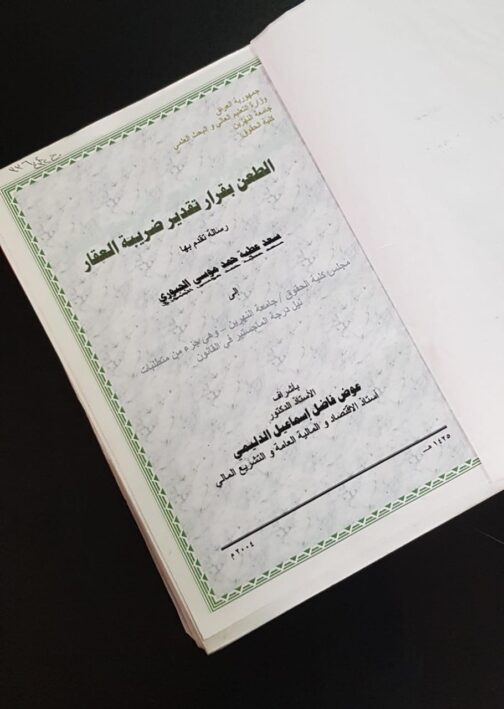 جمهورية العراق
وزارة التعليم العالي و البحث العلمي
جامعة النهرين
كلية الحقوق
الطعن بقرار تقدير ضريبة العقار
رسالة تقدم بها
سعد عطية حمد موسى الجبوري
إلى
مجلس كلية الحقوق / جامعة النهرين – وهي جزء من متطلبات
نيل درجة الماجستير في القانون
بأشراف
الأستاذ الدكتور
عوض فاضل إسماعيل الدليمي
أستاذ الاقتصاد و المالية العامة و التشريع المالي
١٤٢٥ هـ
٢٠٠٤ م